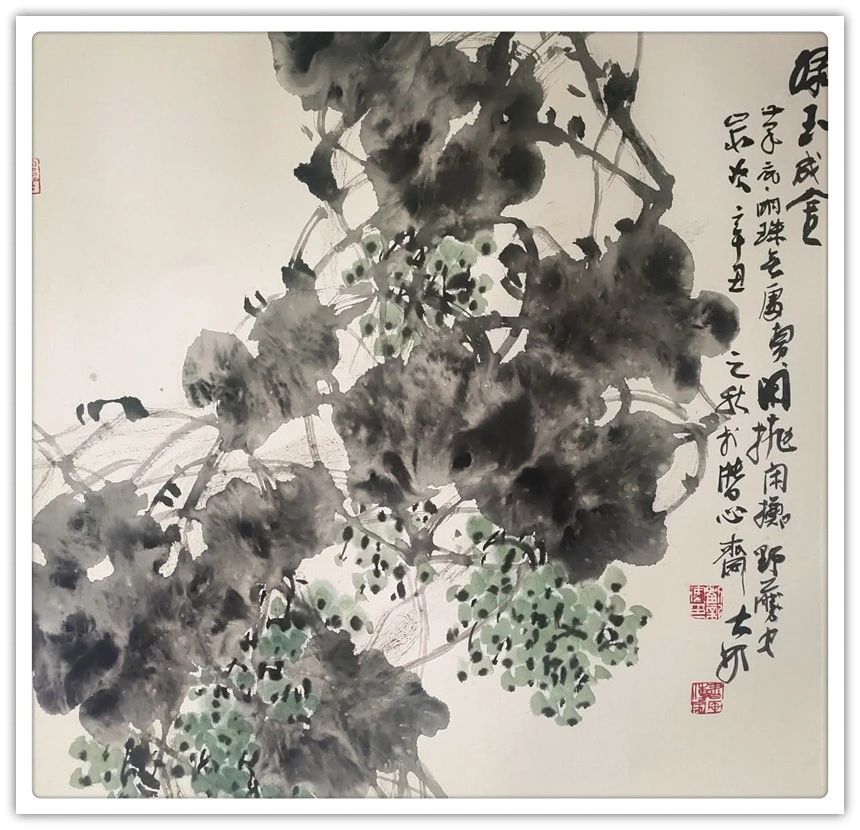 绿玉成
笔底明珠无处卖闲抛闲掷野藤中
岁次辛丑之秋于心斋大